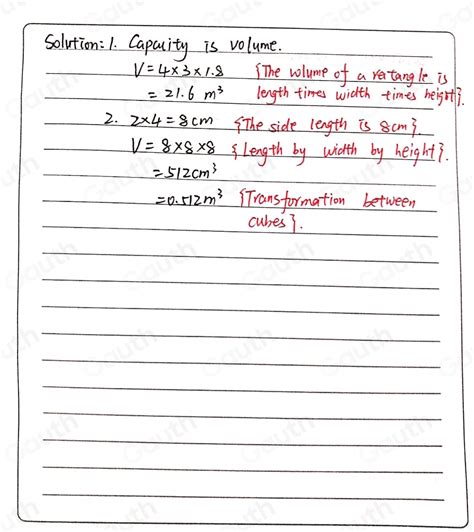 Solution: 1. Capacity is volume.
V = 4×3×1.8 {The volume of a rectangle is
= 21.6 m³ length times width times height}.
2. 2×4 = 8cm {The side length is 8cm}.
V = 8×8×8 {Length by width by height}.
= 512cm³
= 0.512m³ {Transformation between
cubes}.